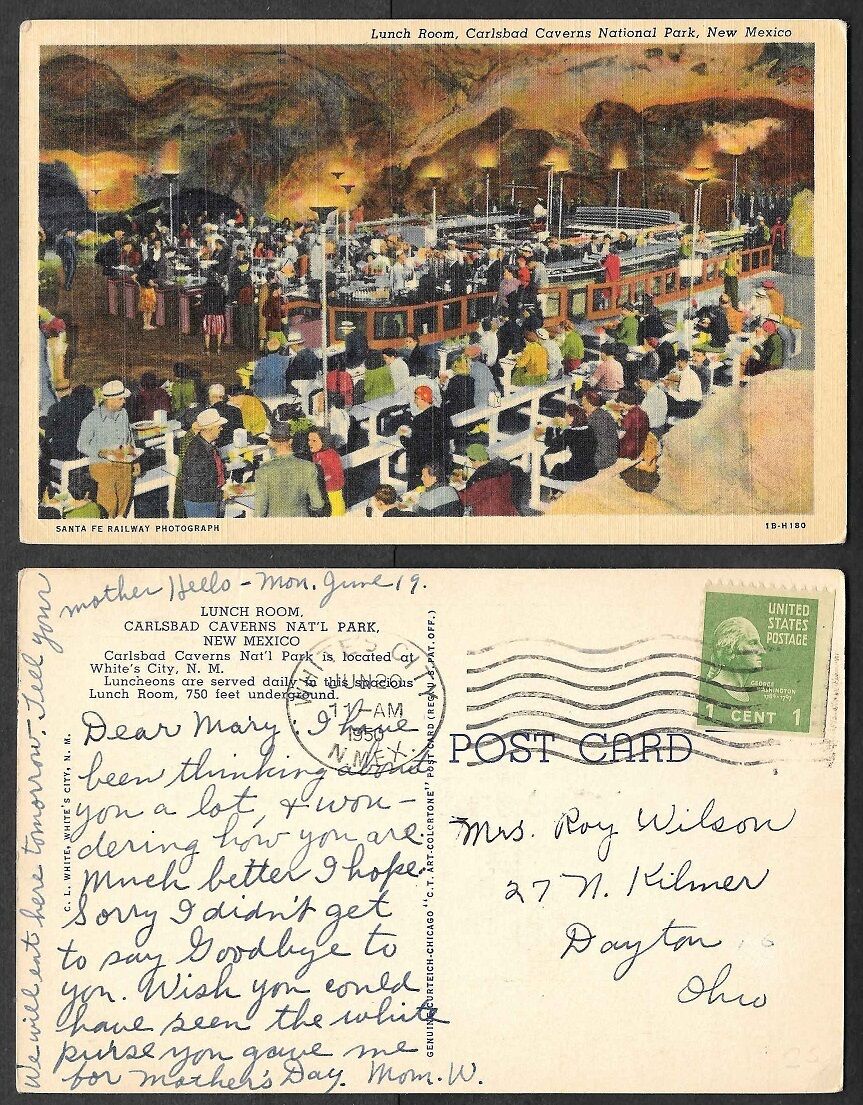 Lunch Room, Carlsbad Caverns National Park, New Mexico
SANTA FE RAILWAY PHOTOGRAPH
1B-H180
mother Hello - Mon. June 19.
LUNCH ROOM,
CARLSBAD CAVERNS NAT'L PARK,
NEW MEXICO
Carlsbad Caverns Nat'l Park is located at
White's City, N. M.
Luncheons are served daily in this spacious
Lunch Room, 750 feet underground.
Dear Mary: I have
been thinking about
you a lot, & won-
dering how you are.
Much better I hope.
Sorry I didn't get
to say Goodbye to
you. Wish you could
have seen the white
purse you gave me
for Mother's Day. Mom. W.
We will eat here tomorrow. Tell your
C. L. WHITE, WHITE'S CITY, N. M.
GENUINE CURTEICH-CHICAGO "C.T. ART-COLORTONE" POST CARD (REG. U.S. PAT. OFF.)
WHITE'S CITY
JUN 20
11-AM
1950
N.MEX.
UNITED
STATES
POSTAGE
GEORGE
WASHINGTON
1789-1797
1 CENT 1
POST CARD
Mrs. Roy Wilson
27 N. Kilmer
Dayton
Ohio